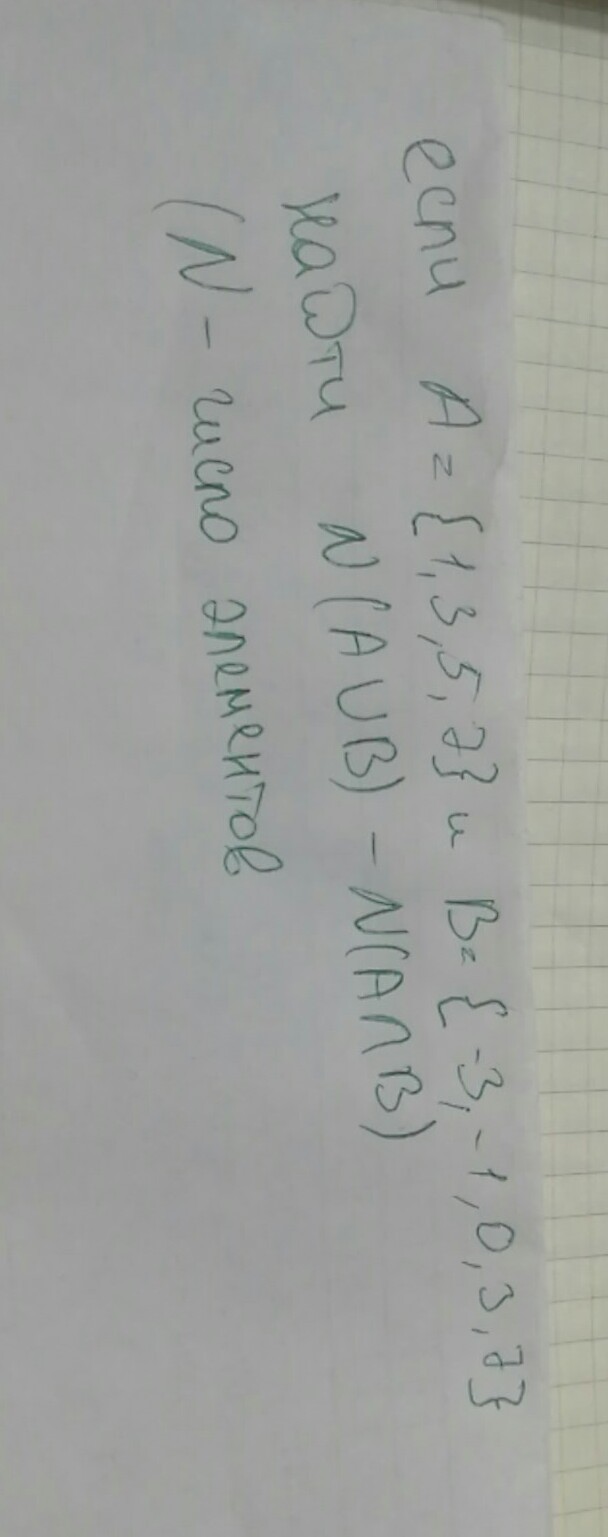 если A = {1, 3, 5, 7} и B = {-3, -1, 0, 3, 7}
найти N(A∪B) - N(A∩B)
(N - число элементов